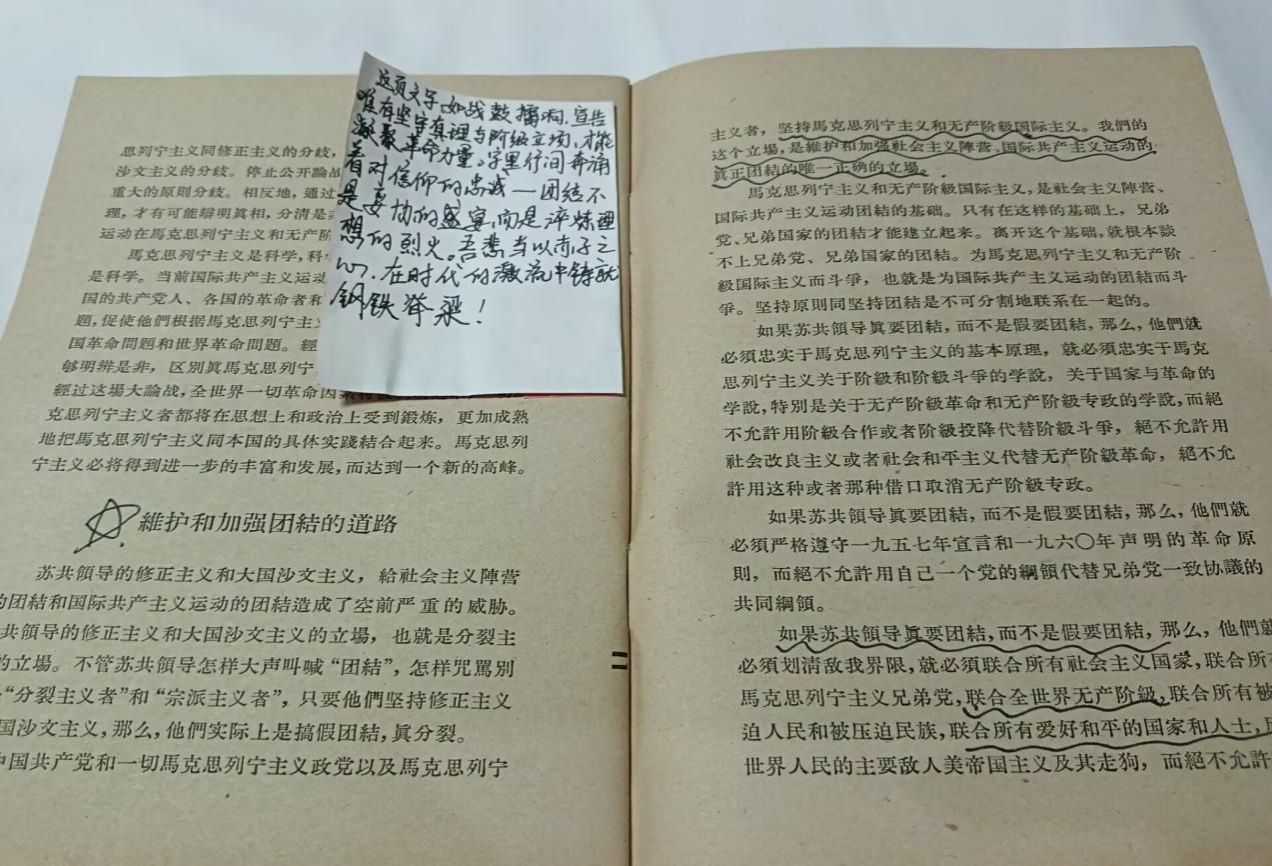 思列宁主义同修正主义的分歧，
沙文主义的分歧。停止公开論战
重大的原則分歧。相反地，通过
理，才有可能辯明眞相，分清是
运动在馬克思列宁主义和无产阶
馬克思列宁主义是科学，科学
是科学。当前国际共产主义运动
国的共产党人、各国的革命者和
題，促使他們根据馬克思列宁主
国革命問題和世界革命問題。經
够明辨是非，区別眞馬克思列宁
經过这場大論战，全世界一切革命因素
克思列宁主义者都将在思想上和政治上受到鍛炼，更加成熟
地把馬克思列宁主义同本国的具体实践結合起来。馬克思列
宁主义必将得到进一步的丰富和发展，而达到一个新的高峰。
維护和加强团結的道路
苏共領导的修正主义和大国沙文主义，給社会主义陣營
的团結和国际共产主义运动的团結造成了空前严重的威胁。
共領导的修正主义和大国沙文主义的立場，也就是分裂主
的立場。不管苏共領导怎样大声叫喊“团結”，怎样咒罵別
“分裂主义者”和“宗派主义者”，只要他們坚持修正主义
国沙文主义，那么，他們实际上是搞假团結，眞分裂。
中国共产党和一切馬克思列宁主义政党以及馬克思列宁
这页文字，如战鼓擂响，宣告
唯有坚守真理与阶级立场，才能
凝聚革命力量。字里行间奔涌
着对信仰的忠诚——团结不
是妥协的盛宴，而是淬炼理
想的烈火。吾辈当以赤子之
心，在时代的激流中铸就
钢铁脊梁！
主义者，坚持馬克思列宁主义和无产阶級国际主义。我們的
这个立場，是維护和加强社会主义陣營、国际共产主义运动的
眞正团結的唯一正确的立場。
馬克思列宁主义和无产阶級国际主义，是社会主义陣營、
国际共产主义运动团結的基础。只有在这样的基础上，兄弟
党、兄弟国家的团結才能建立起来。离开这个基础，就根本談
不上兄弟党、兄弟国家的团結。为馬克思列宁主义和无产阶
級国际主义而斗爭，也就是为国际共产主义运动的团結而斗
爭。坚持原則同坚持团結是不可分割地联系在一起的。
如果苏共領导眞要团結，而不是假要团結，那么，他們就
必須忠实于馬克思列宁主义的基本原理，就必須忠实于馬克
思列宁主义关于阶級和阶級斗爭的学說，关于国家与革命的
学說，特別是关于无产阶級革命和无产阶級专政的学說，而絕
不允許用阶級合作或者阶級投降代替阶級斗爭，絕不允許用
社会改良主义或者社会和平主义代替无产阶級革命，絕不允
許用这种或者那种借口取消无产阶級专政。
如果苏共領导眞要团結，而不是假要团結，那么，他們就
必須严格遵守一九五七年宣言和一九六〇年声明的革命原
則，而絕不允許用自己一个党的綱領代替兄弟党一致协議的
共同綱領。
如果苏共領导眞要团結，而不是假要团結，那么，他們就
必須划清敌我界限，就必須联合所有社会主义国家，联合所
馬克思列宁主义兄弟党，联合全世界无产阶級，联合所有被
迫人民和被压迫民族，联合所有爱好和平的国家和人士，
世界人民的主要敌人美帝国主义及其走狗，而絕不允許